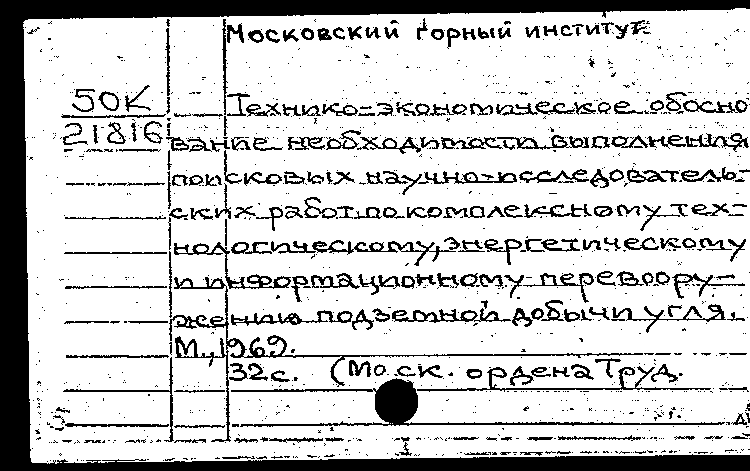 Московский горный институт
50К
21816
Технико-экономическое обосно
вание необходимости выполнения
поисковых научно-исследователь-
ских работ по комплексному тех-
нологическому, энергетическому
и информационному перевоору-
жению подземной добычи угля.
М., 1969.
32с. (Моск. ордена Труд.